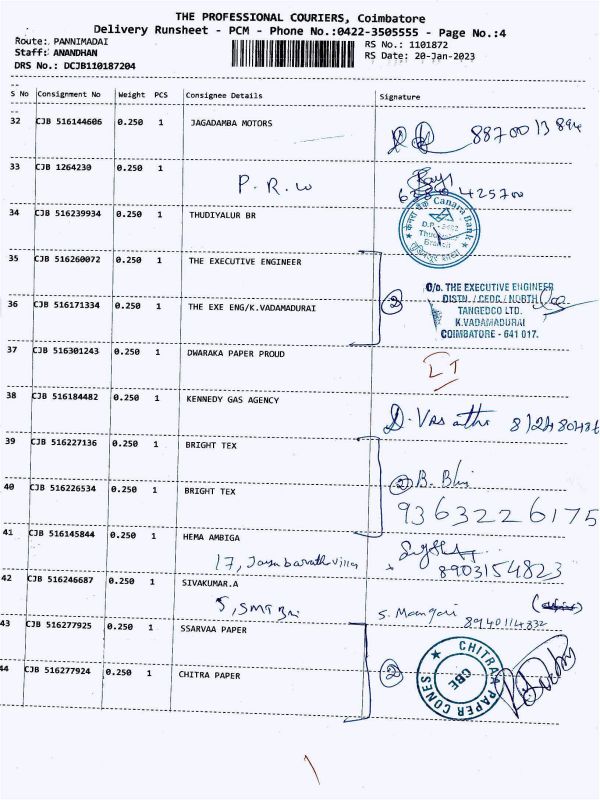 THE PROFESSIONAL COURIERS, Coimbatore
Delivery Runsheet - PCM - Phone No.:0422-3505555 - Page No.:4
Route: PANNIMADAI
Staff: ANANDHAN
DRS No.: DCJB110187204
RS No.: 1101872
RS Date: 20-Jan-2023
S No Consignment No Weight PCS Consignee Details Signature
32 CJB 516144606 0.250 1 JAGADAMBA MOTORS
33 CJB 1264230 0.250 1 P.R.W
34 CJB 516239934 0.250 1 THUDIYALUR BR
केनरा बैंक Canara Bank
D.P.
Branch
35 CJB 516260072 0.250 1 THE EXECUTIVE ENGINEER
36 CJB 516171334 0.250 1 THE EXE ENG/K.VADAMADURAI
2
O/o. THE EXECUTIVE ENGINEER
DISTN. / CEDC / NORTH
TANGEDCO LTD.
K.VADAMADURAI
COIMBATORE - 641 017.
37 CJB 516301243 0.250 1 DWARAKA PAPER PROUD LT
38 CJB 516184482 0.250 1 KENNEDY GAS AGENCY
39 CJB 516227136 0.250 1 BRIGHT TEX
40 CJB 516226534 0.250 1 BRIGHT TEX
2 B.
9363226175
41 CJB 516145844 0.250 1 HEMA AMBIGA
17,
8903154823
42 CJB 516246687 0.250 1 SIVAKUMAR.A
5,
S. Mangai
8940114332
43 CJB 516277925 0.250 1 SSARVAA PAPER
44 CJB 516277924 0.250 1 CHITRA PAPER
2
CHITRAA PAPER CONES
CBE